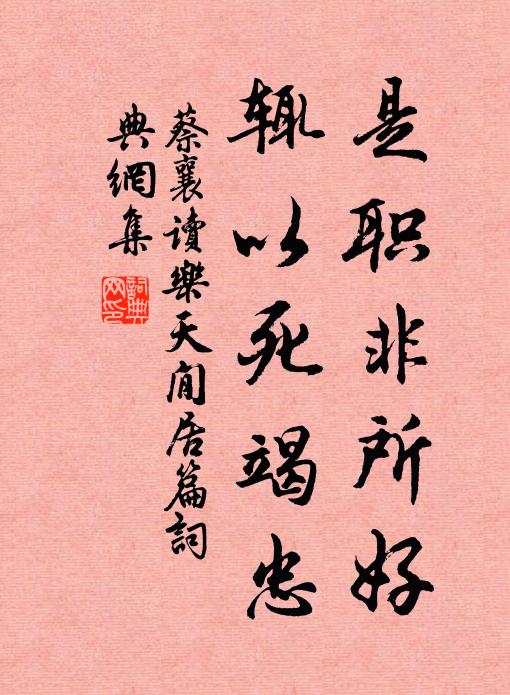 是职非所好
辄以死竭忠
蔡襄读樂天閒居篇詞
典網集
詞典网印